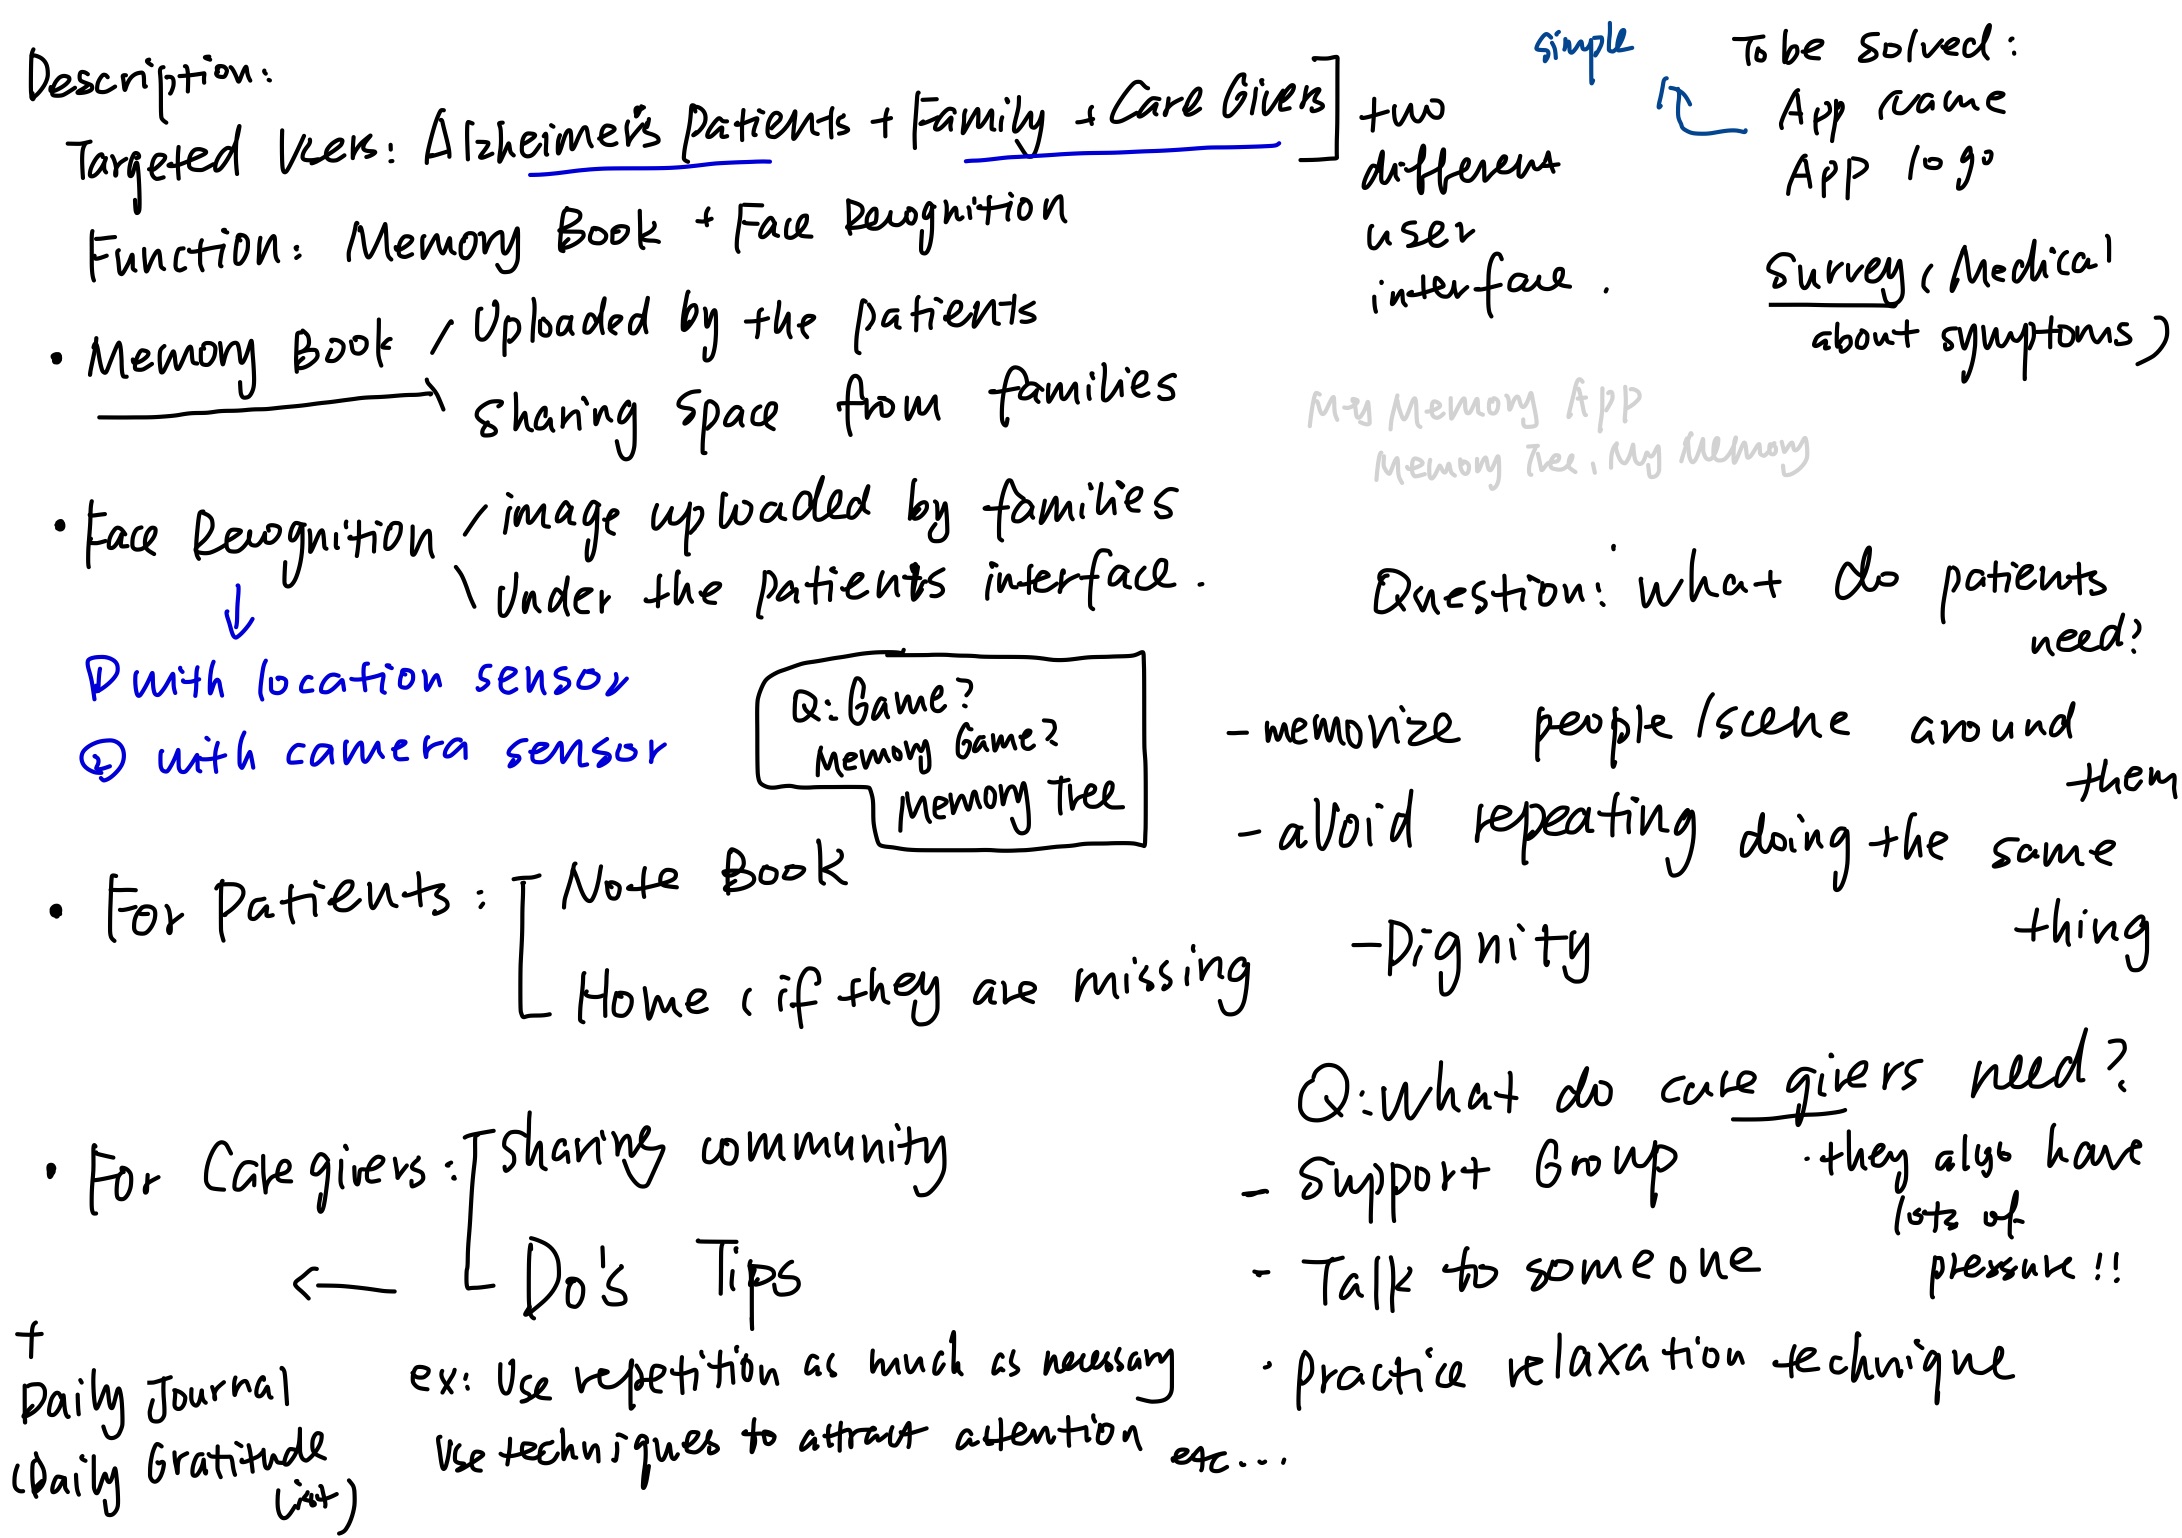 Description:
Targeted Users: Alzheimer's Patients + Family + Care Givers
two
different
user
interface.
Function: Memory Book + Face Recognition
• Memory Book / Uploaded by the patients
\ Sharing Space from families
• Face Recognition / image uploaded by families
\ Under the patients interface.
↓
① with location sensor
② with camera sensor
Q: Game?
Memory Game?
Memory Tree
• For Patients: Note Book
Home (if they are missing
• For Care givers: Sharing community
Do's Tips
←
+
Daily Journal
(Daily Gratitude
List)
ex: Use repetition as much as necessary
Use techniques to attract attention etc...
simple
To be solved:
App name
App logo
Survey (Medical
about symptoms)
My Memory App
Memory Tree, My Memory
Question: what do patients
need?
- memorize people/scene around
them
- avoid repeating doing the same
thing
- Dignity
Q: what do care givers need?
- Support Group
· they also have
lots of
pressure!!
- Talk to someone
· Practice relaxation technique